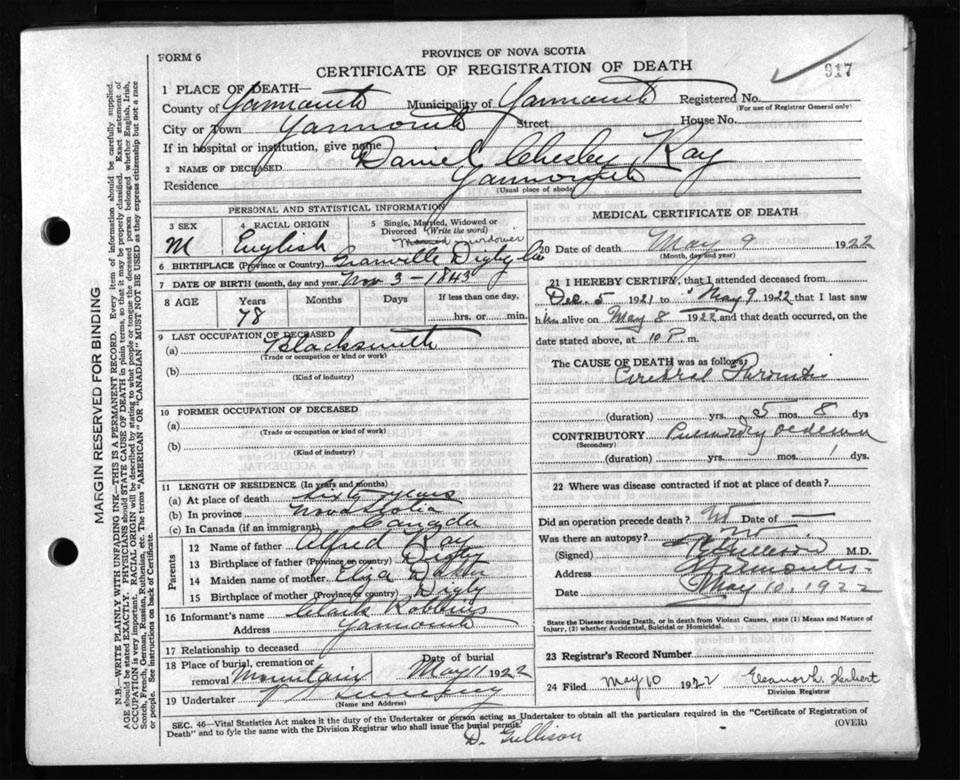 FORM 6
PROVINCE OF NOVA SCOTIA
CERTIFICATE OF REGISTRATION OF DEATH
917
1 PLACE OF DEATH—
County of Yarmouth Municipality of Yarmouth Registered No.
(For use of Registrar General only)
City or Town Yarmouth Street House No.
If in hospital or institution, give name
2 NAME OF DECEASED Daniel Chesley Ray
Residence Yarmouth
(Usual place of abode)
PERSONAL AND STATISTICAL INFORMATION
3 SEX 4 RACIAL ORIGIN 5 Single, Married, Widowed or Divorced (Write the word)
M English widower
6 BIRTHPLACE (Province or Country) Granville Digby Co
7 DATE OF BIRTH (month, day and year) Nov 3 - 1843
8 AGE Years Months Days If less than one day,
78 hrs. or min.
9 LAST OCCUPATION OF DECEASED
(a) Blacksmith
(Trade or occupation or kind or work)
(b)
(Kind of industry)
10 FORMER OCCUPATION OF DECEASED
(a)
(Trade or occupation or kind of work)
(b)
(Kind of Industry)
11 LENGTH OF RESIDENCE (In years and months)
(a) At place of death sixty years
(b) In province Nova Scotia
(c) In Canada (if an immigrant) Canada
Parents
12 Name of father Alfred Ray
13 Birthplace of father (Province or country) Digby
14 Maiden name of mother Eliza
15 Birthplace of mother (Province or country) Digby
16 Informant's name Clark Robbins
Address Yarmouth
17 Relationship to deceased
18 Place of burial, cremation or removal Mountain Date of burial May 11 1922
19 Undertaker V S Sweeney
(Name and Address)
MEDICAL CERTIFICATE OF DEATH
20 Date of death May 9 1922
(Month, day and year)
21 I HEREBY CERTIFY, that I attended deceased from
Dec 5 1921 to May 9 1922 that I last saw
him alive on May 8 1922 and that death occurred, on
date stated above, at 10 P. m.
The CAUSE OF DEATH was as follows:
Cerebral
(duration) yrs. 5 mos. 8 dys
CONTRIBUTORY Pulmonary oedema
(Secondary)
(duration) yrs. mos. 1 dys.
22 Where was disease contracted if not at place of death?
Did an operation precede death? No Date of —
Was there an autopsy? No
(Signed) M.D.
Address Yarmouth
Date May 10, 1922
State the Disease causing Death, or in death from Violent Causes, state (1) Means and Nature of
Injury, (2) whether Accidental, Suicidal or Homicidal.
23 Registrar's Record Number
24 Filed May 10 1922 Eleanor L. Herbert
Division Registrar
SEC. 46—Vital Statistics Act makes it the duty of the Undertaker or person acting as Undertaker to obtain all the particulars required in the "Certificate of Registration of
Death" and to fyle the same with the Division Registrar who shall issue the burial permit. (OVER)
D. Gullison
MARGIN RESERVED FOR BINDING
N.B.—WRITE PLAINLY WITH UNFADING INK—THIS IS A PERMANENT RECORD. Every item of information should be carefully supplied.
AGE should be stated EXACTLY. PHYSICIANS should STATE CAUSE OF DEATH in plain terms, so that it may be properly classified. Exact statement of
OCCUPATION is very important. RACIAL ORIGIN will be described by stating to what people or tongue the deceased person belonged whether English, Irish,
Scotch, French, German, Russian, Ruthenian, etc. The terms "AMERICAN" OR "CANADIAN" MUST NOT BE USED as they express citizenship but not a race
or people. See instructions on back of Certificate.